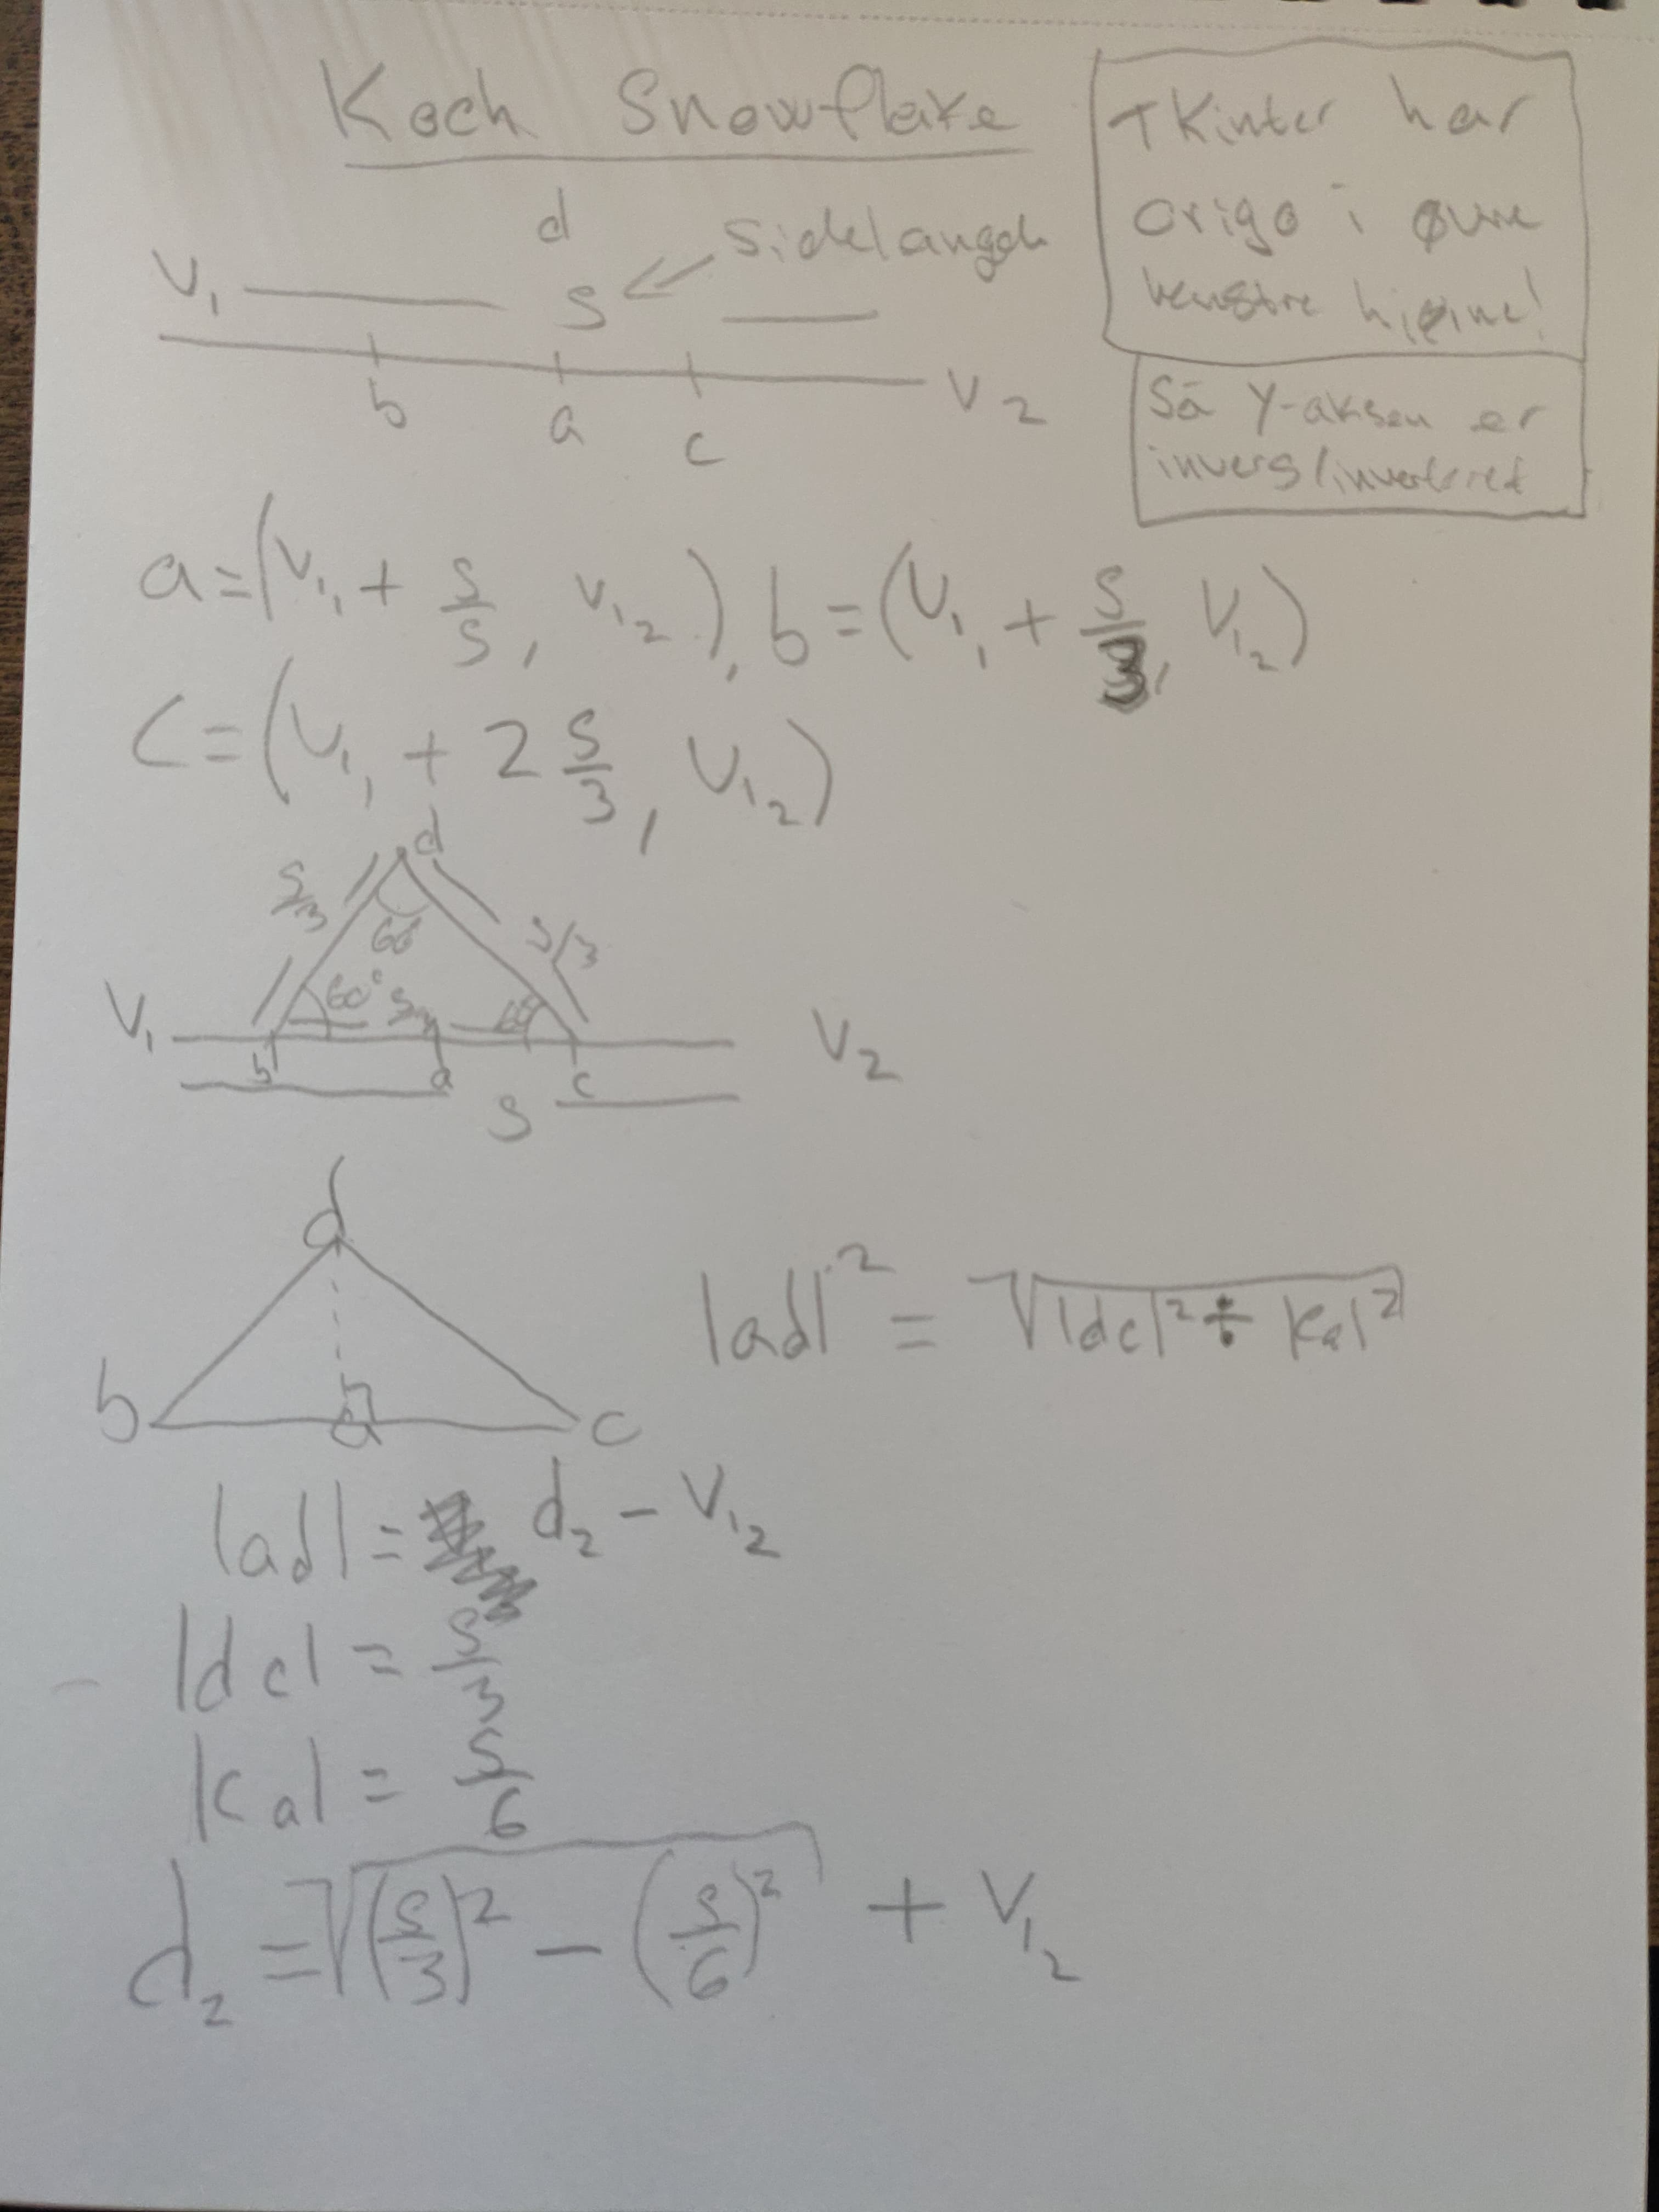 Koch Snowflake
TKinter har
origo i øvre
venstre hjørne!
Så Y-aksen er
invers/inverteret
d
V₁ S ← sidelængde
b a c V₂
a=(V₁₁ + S/S, V₁₂), b=(V₁₁ + S/3, V₁₂)
C=(V₁₁ + 2 S/3, V₁₂)
d
S/3 60° S/3
60° S/3 60°
V₁ b a c V₂
S
d
|ad|² = √|dc|² ÷ |ca|²
b a c
|ad| = d₂ - V₁₂
|dc| = S/3
|ca| = S/6
d₂ = √(S/3)² - (S/6)² + V₁₂